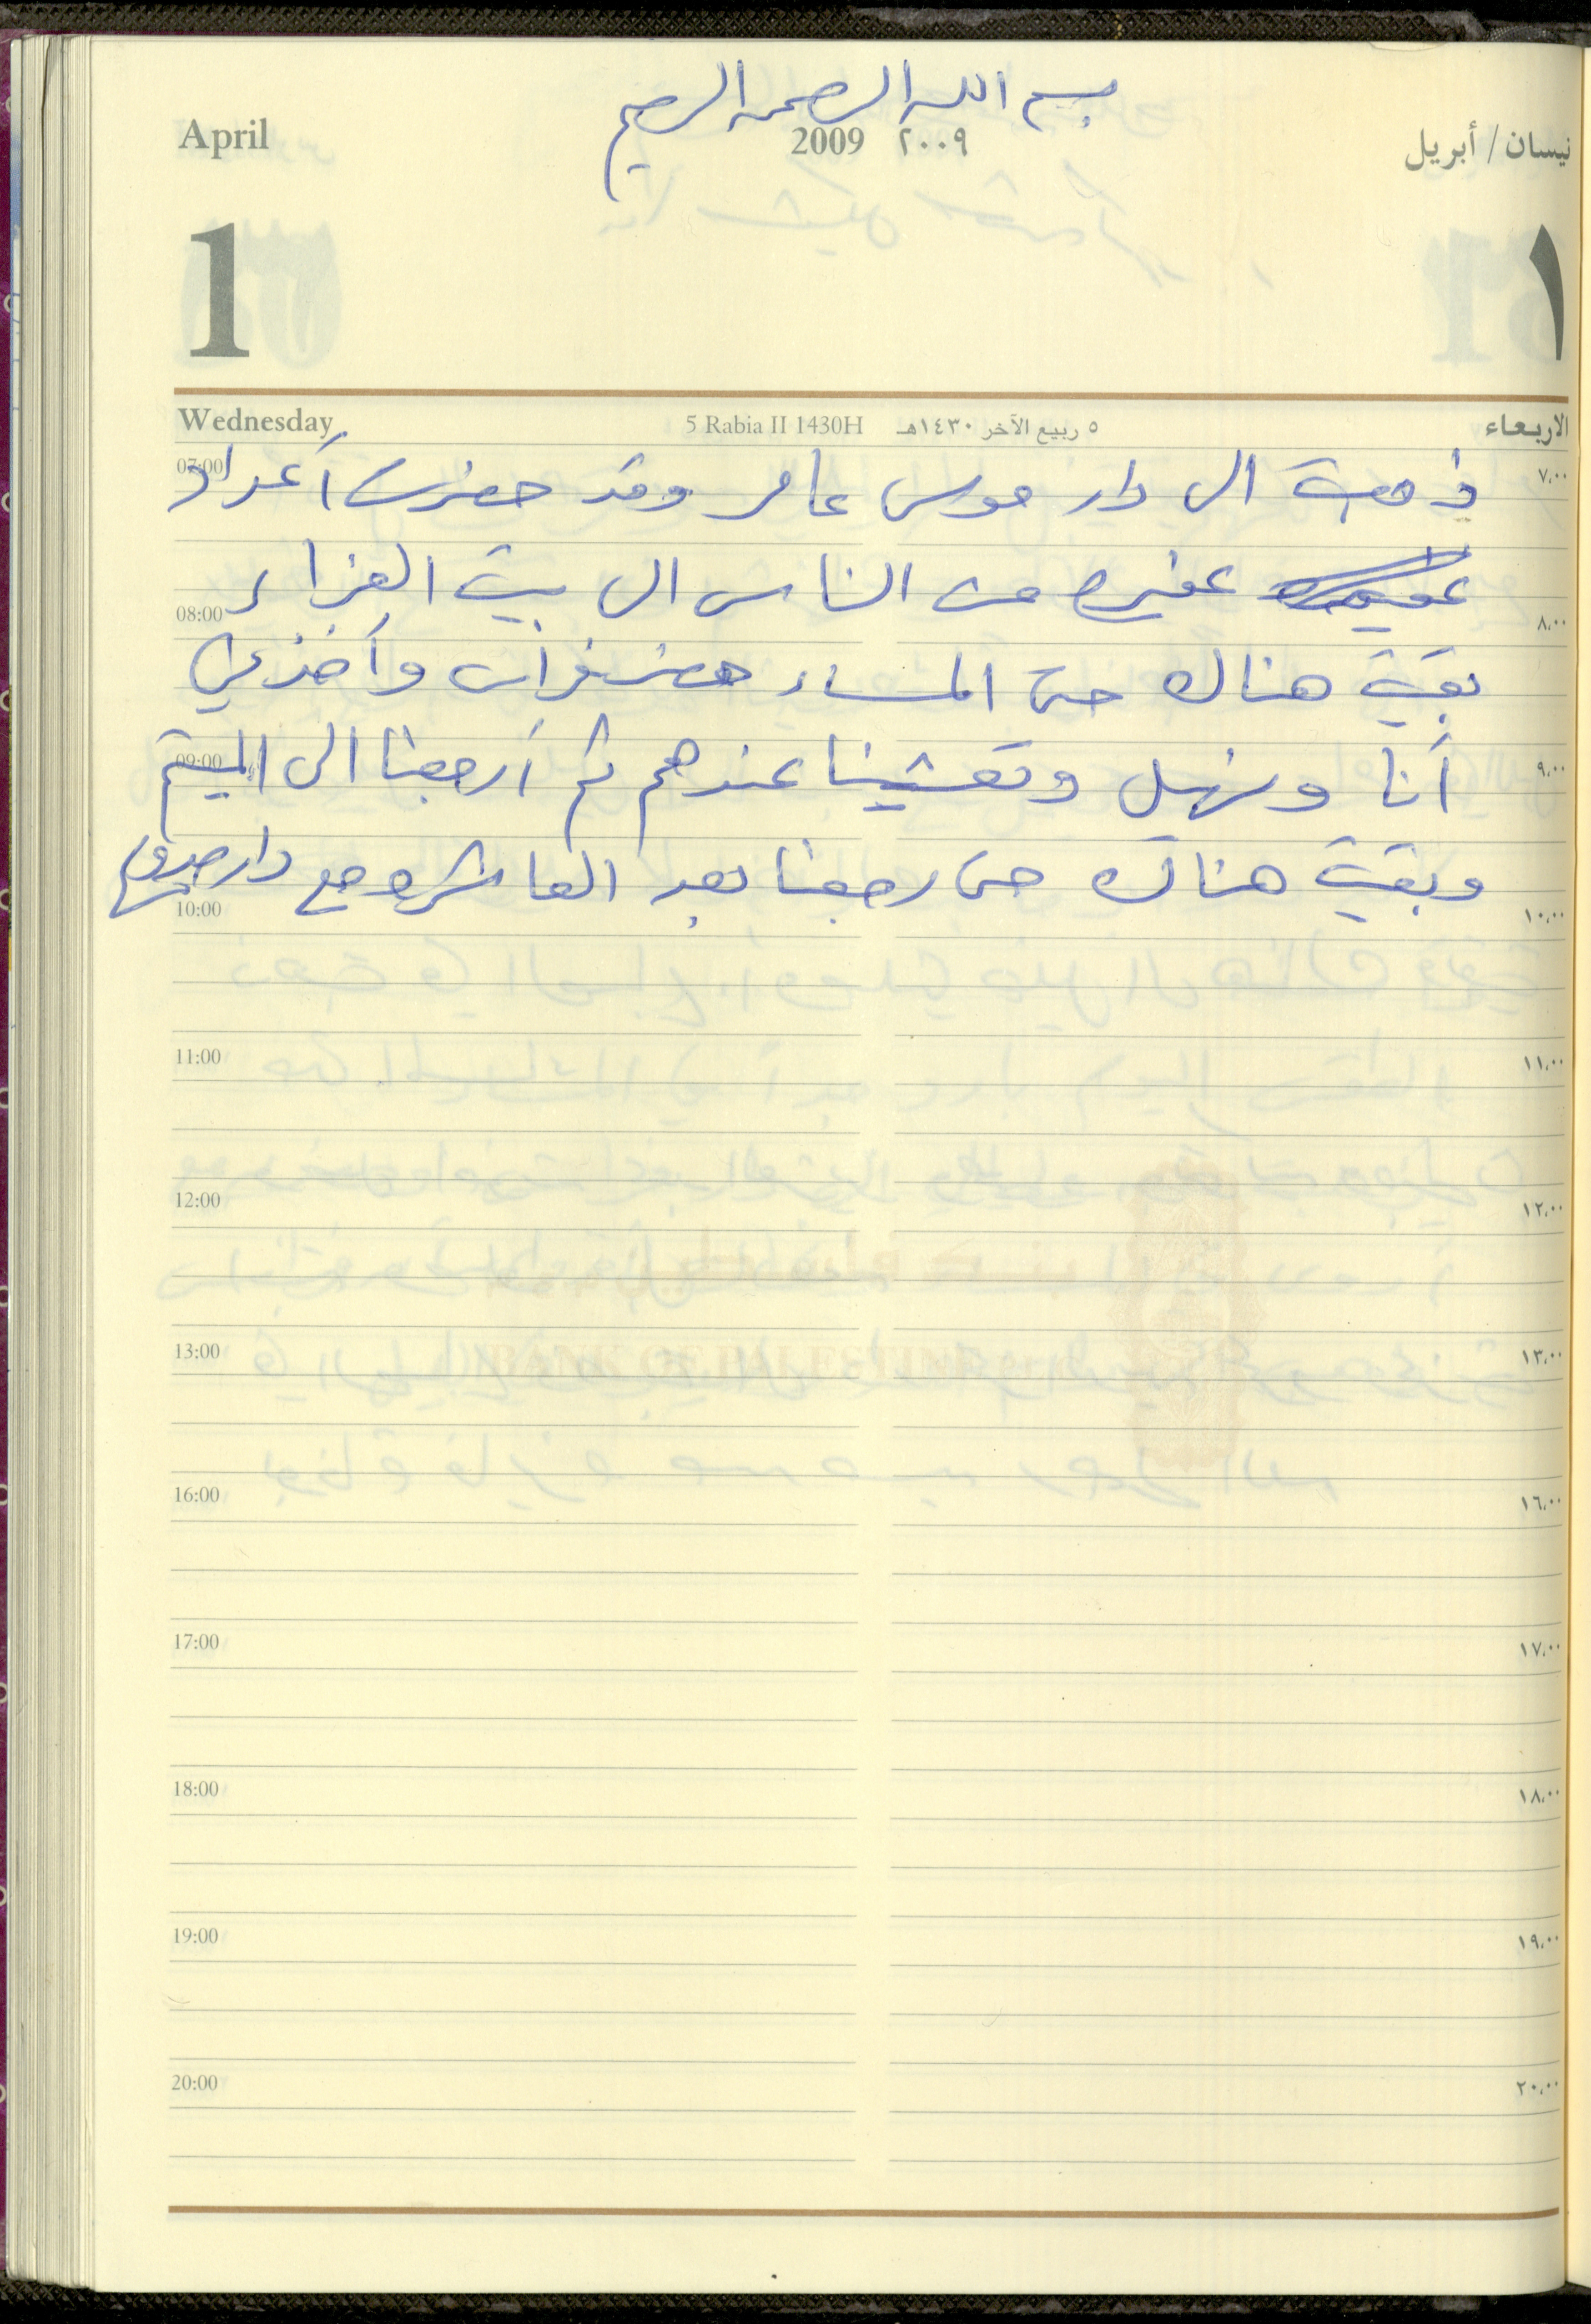 بسم الله الرحمن الرحيم
April 2009 ٢٠٠٩ نيسان / أبريل
1 ١
Wednesday 5 Rabia II 1430H ٥ ربيع الآخر ١٤٣٠هـ الاربعاء
07:00 ٧،٠٠
ذهبت الى دار موسى عامر وقد حضرت أعداد
غفيره من الناس الى بيت العزاء
08:00 ٨،٠٠
بقيت هناك حتى المساء حضر فراس وأخذني
أنا ونهيل وتعشينا عندهم ثم أرجعنا الى الميتم
09:00 ٩،٠٠
وبقيت هناك حتى رجعنا بعد العاشره مع دار صدقي
10:00 ١٠،٠٠
11:00 ١١،٠٠
12:00 ١٢،٠٠
13:00 ١٣،٠٠
16:00 ١٦،٠٠
17:00 ١٧،٠٠
18:00 ١٨،٠٠
19:00 ١٩،٠٠
20:00 ٢٠،٠٠